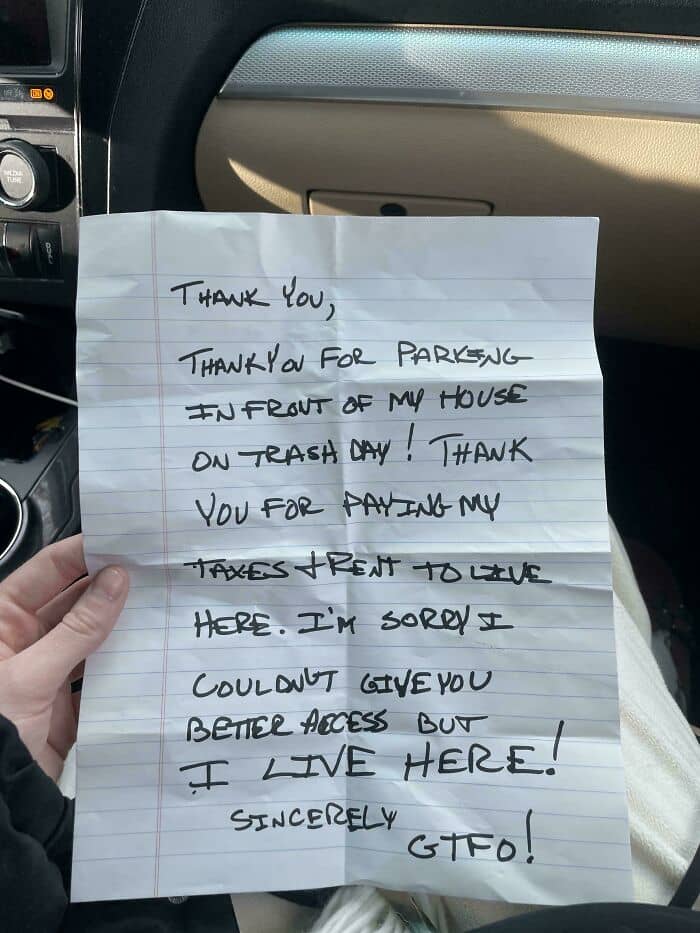 MEDIA
TUNE
THANK YOU,
THANK YOU FOR PARKING
IN FRONT OF MY HOUSE
ON TRASH DAY! THANK
YOU FOR PAYING MY
TAXES + RENT TO LIVE
HERE. I'M SORRY I
COULDN'T GIVE YOU
BETTER ACCESS BUT
I LIVE HERE!
SINCERELY
GTFO!